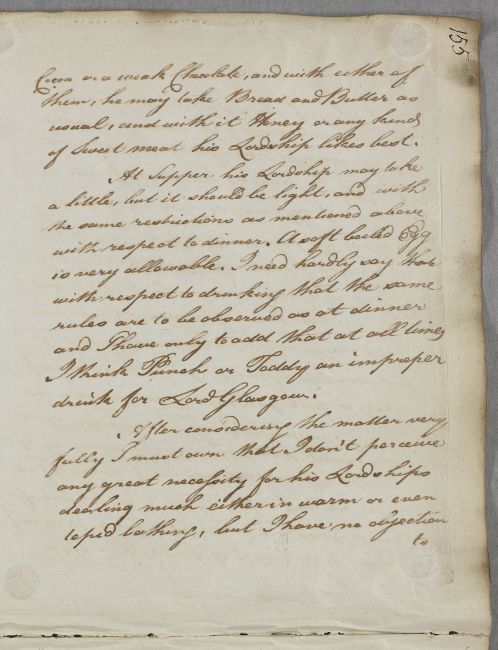 155
Cocoa or a weak Chocolate, and with either of
them, he may take Bread and Butter as
usual, and with it Honey or any kind
of Sweet meat his Lordship likes best.
At Supper his Lordship may take
a little, but it should be light, and with
the same restrictions as mentioned above
with respect to dinner. A soft boiled Egg
is very allowable. I need hardly say that
with respect to drinking that the same
rules are to be observed as at dinner
and I have only to add that at all times
I think Punch or Toddy an improper
drink for Lord Glasgow.
After considering the matter very
fully I must own that I don't perceive
any great necessity for his Lordships
dealing much either in warm or even
tepid bathing, but I have no objection
to